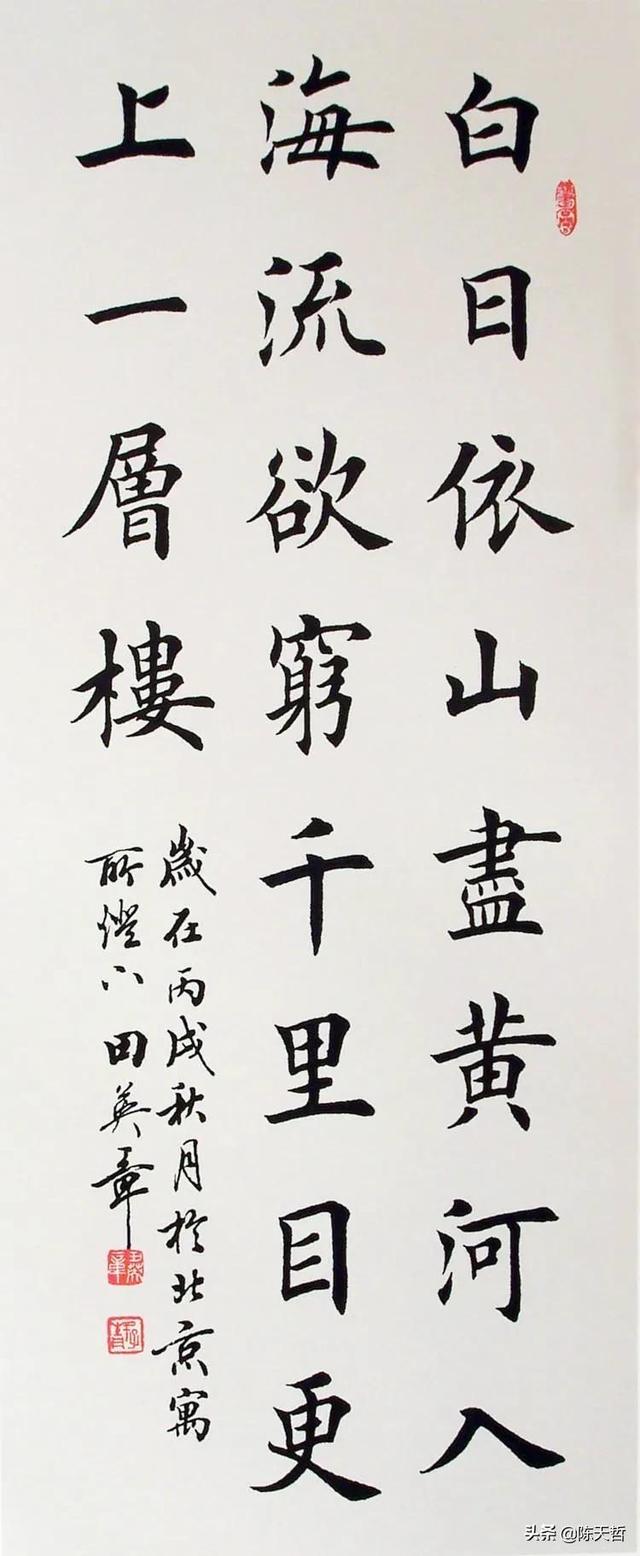 白日依山盡黄河入
海流欲窮千里目更
上一層樓
歲在丙戌秋月於北京寓
所燈下田英章
头条 @陈天哲